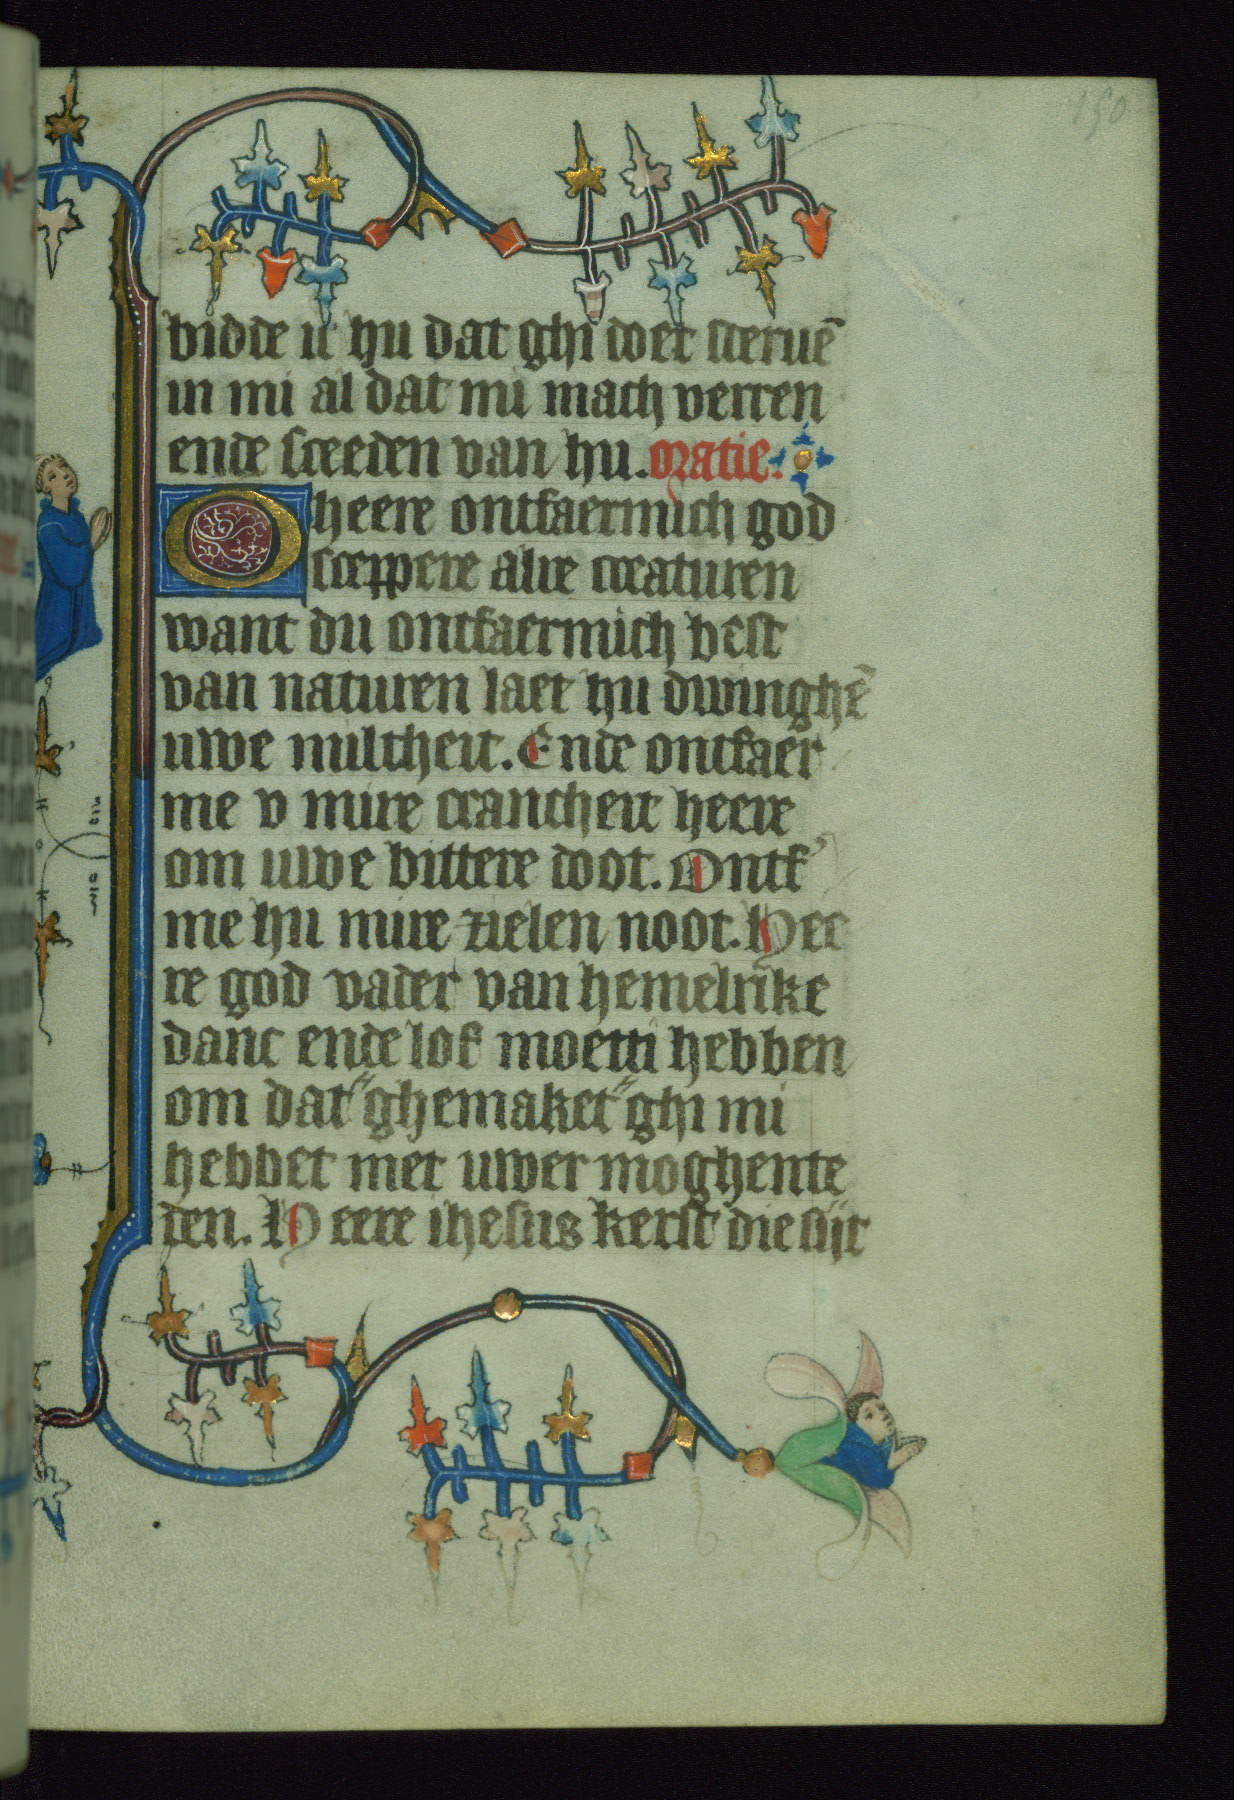 150
bidde ic hu dat ghi doet steruē
in mi al dat mi mach verren
ende sceeden van hu. oratie.
O heere ontfaermich god
sceppere alre creaturen
want du ontfaermich best
van naturen laet hu dwinghē
uwe miltheit. Ende ontfaer
me v mire crancheit heere
om uwe bittere doot. Ontf'
me hu mire zielen noot. Hee
re god vader van hemelrike
danc ende lof moetti hebben
om dat " ghemaket " ghi mi
hebbet met uwer moghente
den. Heere ihesus kerst die sijt